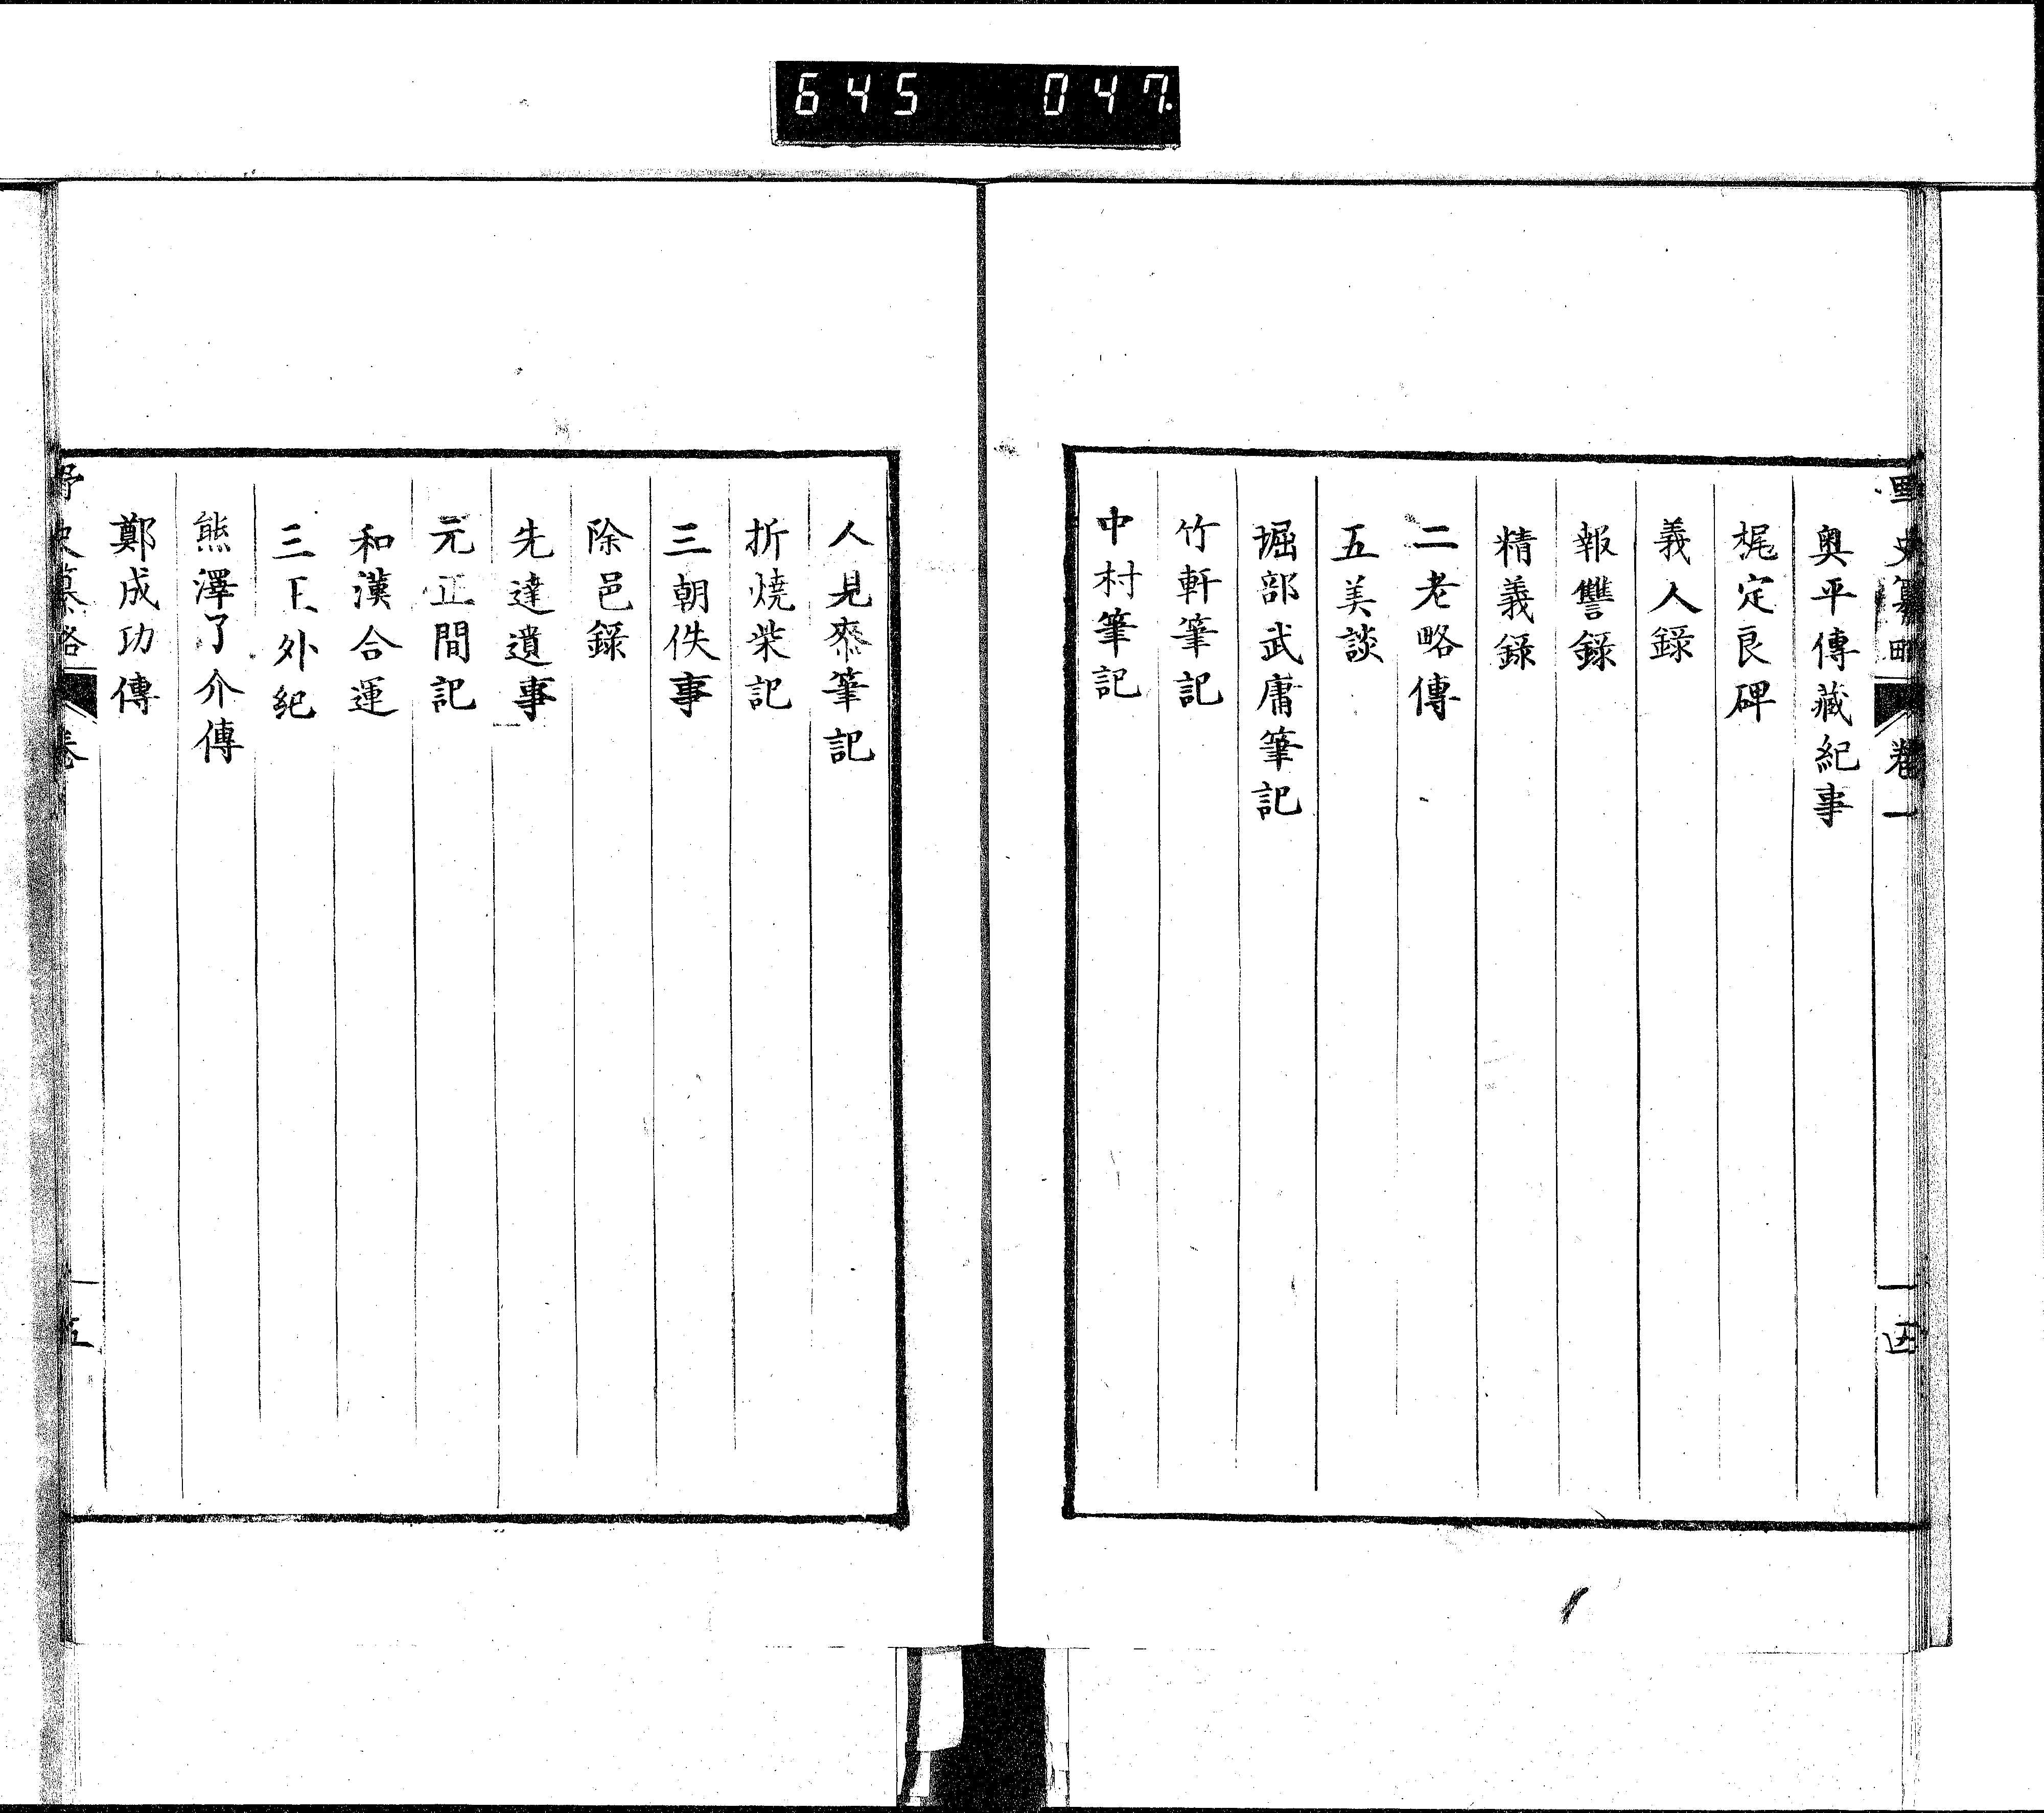 645 047.
野史纂略 卷一 一四
奥平傳藏紀事
梶定良碑
義人錄
報讐錄
精義錄
二老略傳
五美談
堀部武庸筆記
竹軒筆記
中村筆記
人見泰筆記
折燒柴記
三朝佚事
除邑錄
先達遺事
元正間記
和漢合運
三王外紀
熊澤了介傳
鄭成功傳
野史纂略 卷 一五